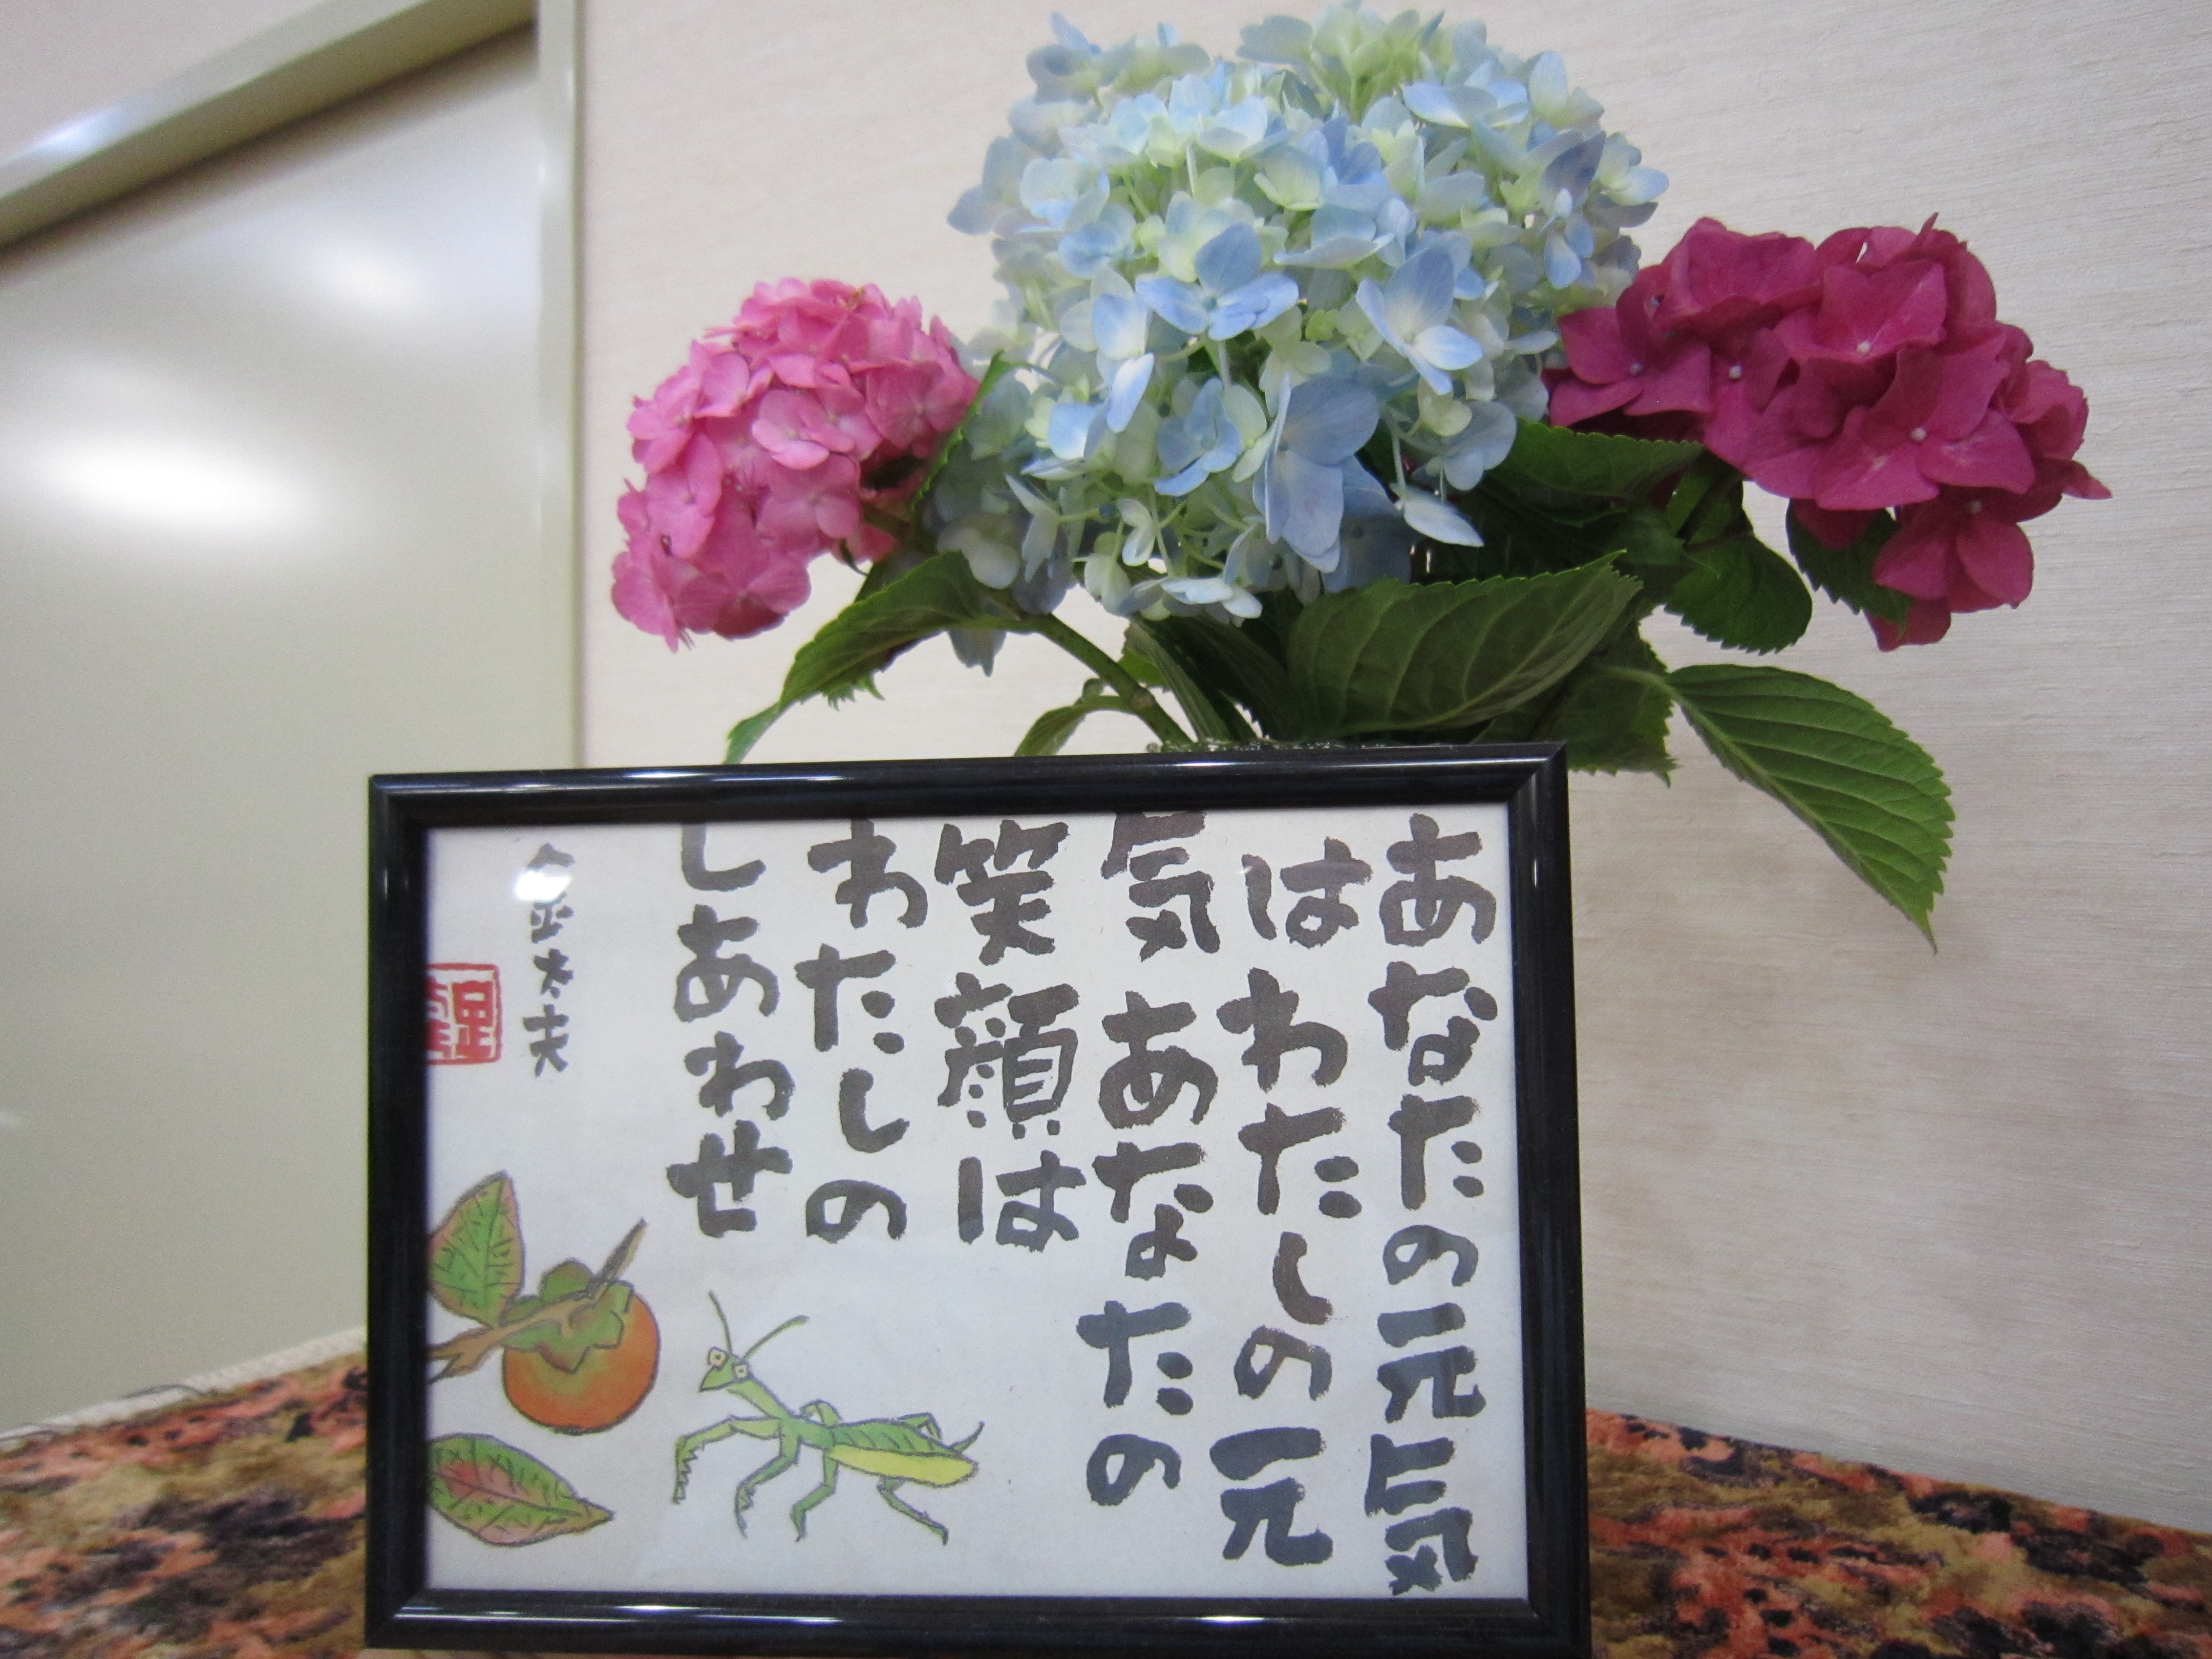 あなたの元気
はわたしの元
気あなたの
笑顔は
わたしの
しあわせ
太夫